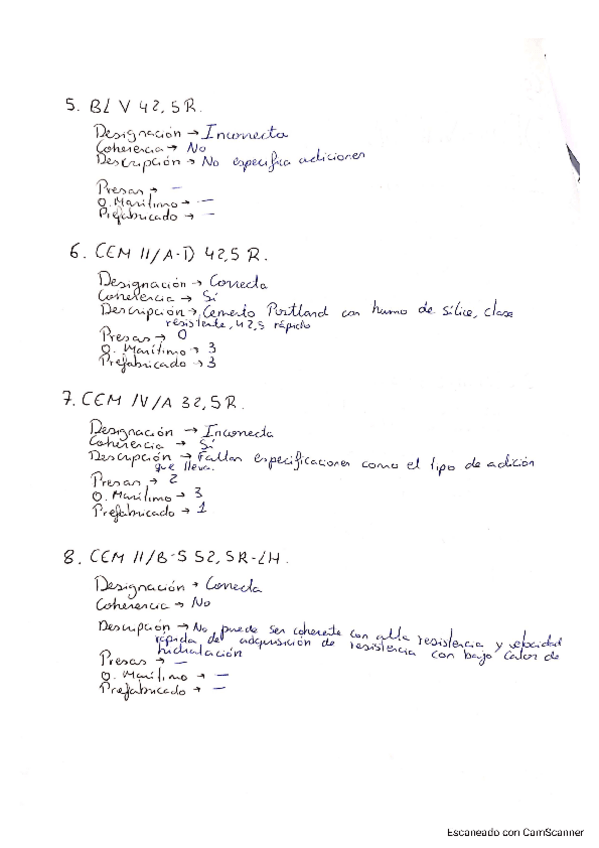 5. BL V 42,5R.
Designación → Incorrecta
Coherencia → No
Descripción → No especifica adiciones
Presas → -
O. Marítimo → -
Prefabricado → -
6. CEM II/A-D 42,5 R.
Designación → Correcta
Coherencia → Sí
Descripción → Cemento Portland con humo de sílice, clase
resistente, 42,5 rápido
Presas → 0
O. Marítimo → 3
Prefabricado → 3
7. CEM IV/A 32,5R.
Designación → Incorrecta
Coherencia → Sí
Descripción → Faltan especificaciones como el tipo de adición
que lleva.
Presas → 2
O. Marítimo → 3
Prefabricado → 1
8. CEM II/B-S 52,5R-LH.
Designación → Correcta
Coherencia → No
Descripción → No puede ser coherente con alta resistencia y velocidad
rápida de adquisición de resistencia con bajo calor de
hidratación
Presas → -
O. Marítimo → -
Prefabricado → -
Escaneado con CamScanner